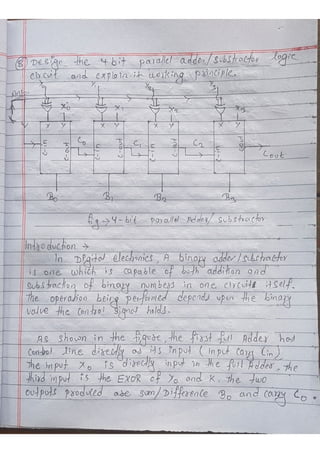 Design the 4 bit parallel adder/substractor logic
circuit and explain it working principle.
X0 X1 X2 X3
X Y X Y X Y X Y
C0 C1 C2 Cout
B0 B1 B2 B3
fig → 4-bit parallel Adder/ Substractor
Introduction →
In Digital electronics, A binary adder/substractor
is one which is capable of both addition and
substraction of binary numbers in one circuit itself.
The operation being performed depends upon the binary
value the control signal holds.
As shown in the figure, the first full Adder has
control line directly as its input (input Carry Cin)
The input X0 is directly input in the full Adder. the
third input is the EXOR of Y0 and K. The two
outputs produced are sum/Difference B0 and carry C0.